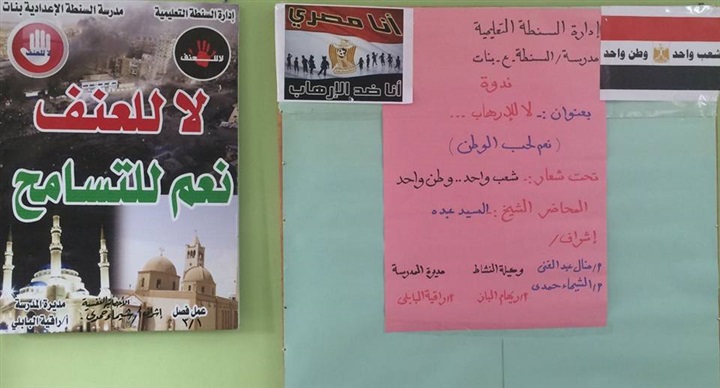 إدارة السنطة التعليمية
مدرسة السنطة الإعدادية بنات
لا للعنف
لا للعنف
لا للعنف
نعم للتسامح
عمل فصل
٣/١
مديرة المدرسة
أ/ راقية البابلي
أنا مصري
أنا ضد الإرهاب
إدارة السنطة التعليمية
مدرسة/السنطة.ع.بنات
ندوة
بعنوان :ـ لا للإرهاب ...
(نعم لحب الوطن)
تحت شعار :ـ شعب واحد..وطن واحد
المحاضر الشيخ :ـ السيد عبده
إشراف/
أ/منال عبدالغنى وكيلة النشاط مديرة المدرسة
أ/الشيماء حمدى أ/ريهام الباز أ/راقية البابلى
شعب واحد وطن واحد